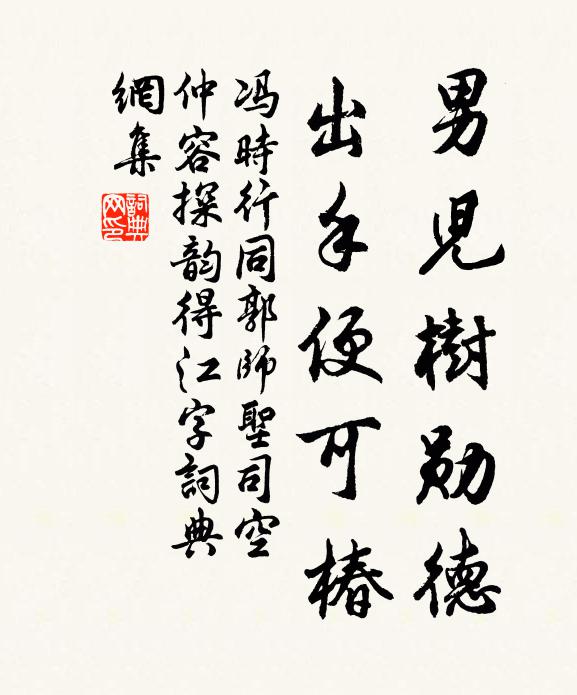 男児樹勋德
出手便可椿
冯時行同郭師聖司空
仲容探韵得江字詞典
網集
詞典
网印